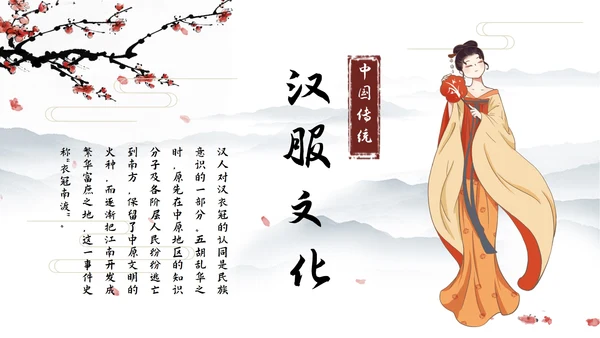 中国传统
汉服文化
汉人对汉衣冠的认同是民族
意识的一部分。五胡乱华之
时，原先在中原地区的知识
分子及各阶层人民纷纷逃亡
到南方，保留了中原文明的
火种，而逐渐把江南开发成
繁华富庶之地，这一事件史
称“衣冠南渡”。